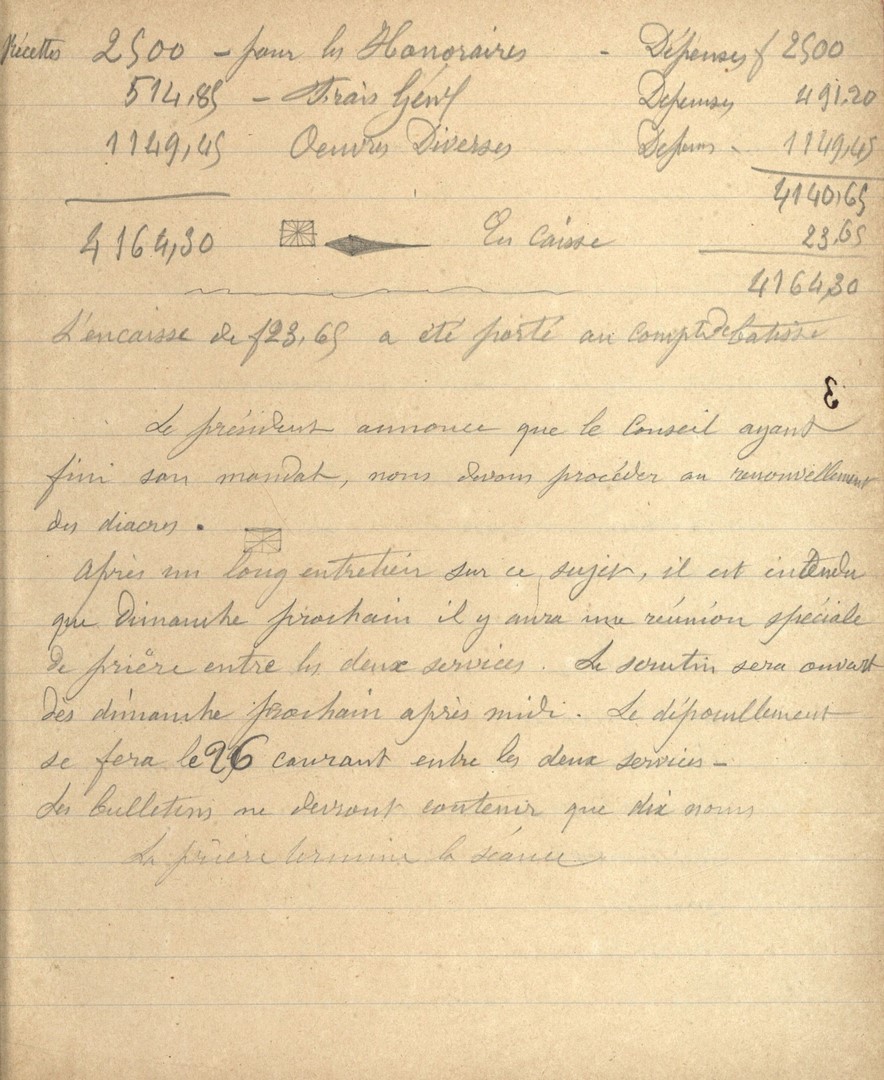 Récettes 2500 - pour les Honoraires - Dépenses f 2500
514,85 - Frais Génx Depenses 491,20
1149,45 Oeuvres Diverses Depens - 1149,45
4140,65
4164,30 En Caisse 23,65
4164,30
L'encaisse de f 23,65 a été porté au compte de batisse
3
Le président annonce que le Conseil ayant
fini son mandat, nous devons procéder au renouvellement
des diacres.
Après un long entretien sur ce sujet, il est entendu
que Dimanche prochain il y aura une réunion spéciale
de prière entre les deux services. Le scrutin sera ouvert
dès dimanche prochain après midi. Le dépouillement
se fera le 26 courant entre les deux services -
Les bulletins ne devront contenir que dix noms
La prière termine la séance